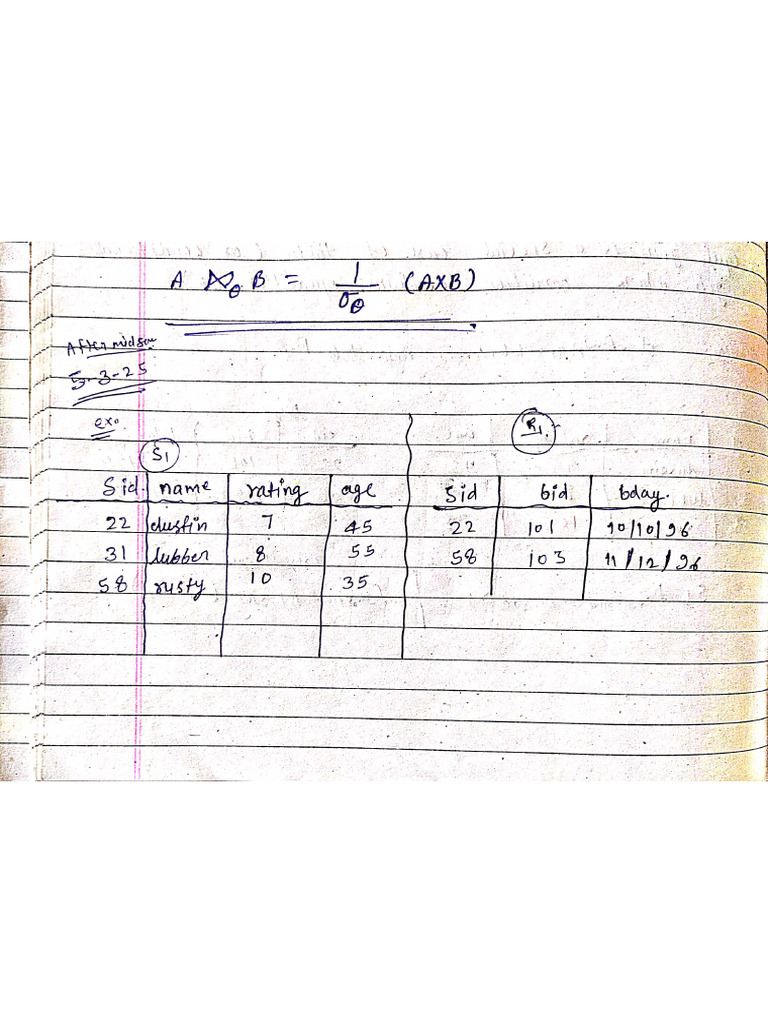 A ⋈θ B = 1/σθ (A×B)
After midsem
5-3-25
exo
S1 R1.
Sid. name rating age Sid bid. bday.
22 dustin 7 45 22 101 10/10/96
31 lubber 8 55 58 103 11/12/96
58 rusty 10 35